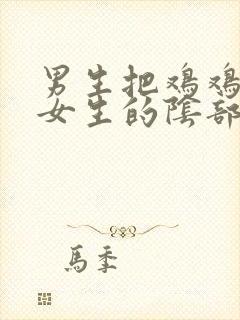 男生把鸡鸡
女生的阴部
馬季